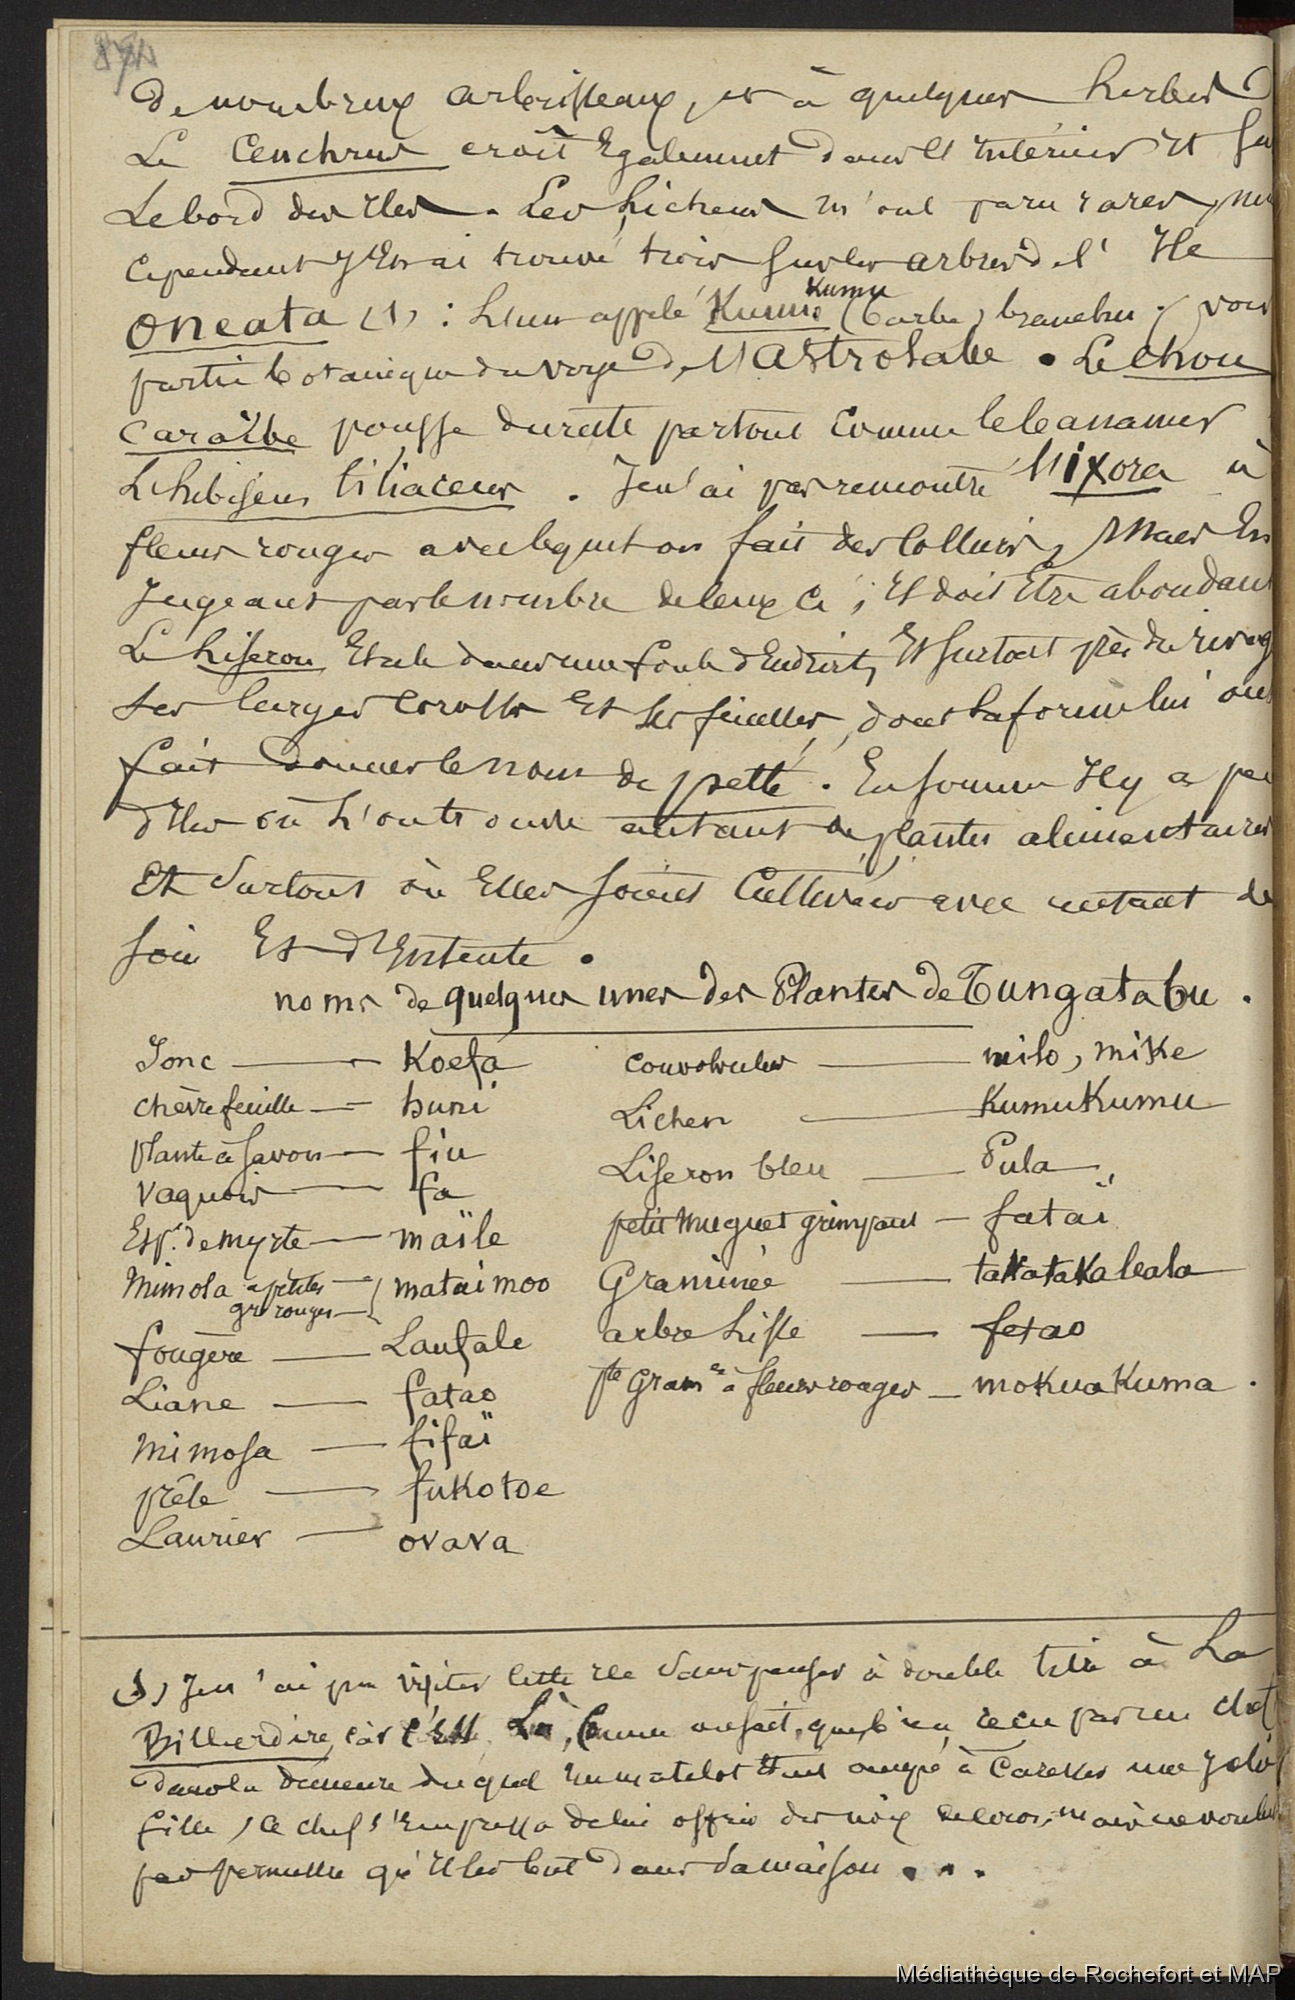 87
De nombreux arbrisseaux, et à quelques herbes
Le Cenchrus croît Egalement dans l'Intérieur Et Su
Le bord des Iles. Les Lichens m'ont paru rares,
cependant J'En ai trouvé trois Sur les arbres de l'Ile
Oneata (1) : L'un appelé Kumu Kumu (barbe) branchu (voir
partie botanique du voyage de l'Astrolabe. Le chou
caraïbe pousse du reste partout Comme le bananier
L'hibiscus tiliaceus. Je n'ai pas rencontré l'Ixora à
fleurs rouges avec lequel on fait des Colliers, Mais En
Jugeant par le nombre de ceux Ci, Il doit Etre abondant
Le Liseron Etale dans une foule d'Endroits, Et Surtout près du rivag
Ses larges corolles Et Ses feuilles, dont la forme lui ont
fait donner le nom de patte. En Somme Il y a peu
d'Iles où L'on trouve autant de plantes alimentaires
Et Surtout où Elles Soient Cultivées avec autant de
Soin Et d'Entente.
noms de quelques unes des Plantes de Tungatabu.
Jonc — Koefa
chèvrefeuille — huni
Plante à Savon — fiu
Vaquois — fa
Esp. de myrte — maïle
Mimosa à petites gr. rouges — mataimoo
fougère — Laufale
Liane — fatao
Mimosa — fifaï
prêle — fukotoe
Laurier — ovava
convolvulus — milo, mike
Lichen — KumuKumu
Liseron bleu — Pula
petit muguet grimpant — fataï
Graminée — takataka
arbre Lisse — fetao
pte Gramée à fleurs rouges — mokuakuma.
(1) Je n'ai pu visiter cette Ile Sans penser à double titre à La
Billardière, car c'Est Là, Comme on Sait, qu'il reçu par un chef
dans la demeure duquel un matelot Etant occupé à Caresser une Jolie
fille, le chef s'Empressa de lui offrir des noix de coco, mais ne voulut
pas permettre qu'Il les but Dans Sa maison . . .
Médiathèque de Rochefort et MAP